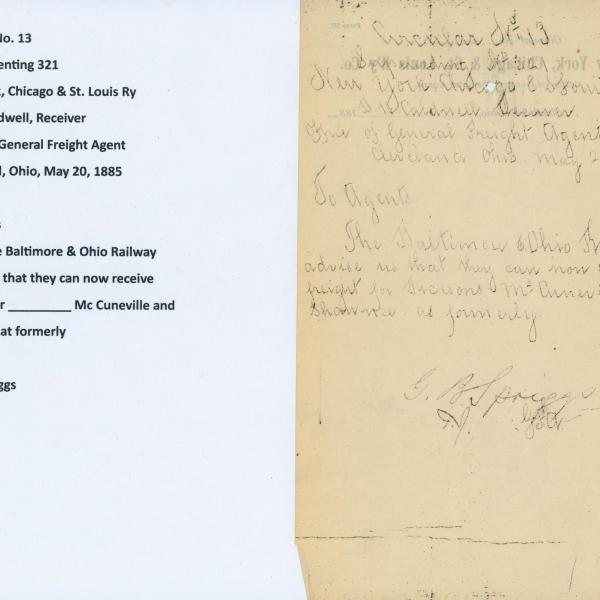 No. 13
enting 321
, Chicago & St. Louis Ry
dwell, Receiver
General Freight Agent
, Ohio, May 20, 1885
e Baltimore & Ohio Railway
that they can now receive
r _________ Mc Cuneville and
at formerly
ggs
Circular No 13
New York Chicago & St Loui
D W Caldwell Receiver
Office of General Freight Agent
Cleveland Ohio May 2
To Agents
The Baltimore & Ohio R
advise us that they can now
freight for Mc Cunev
Shawnee as formerly
G. B. Spriggs